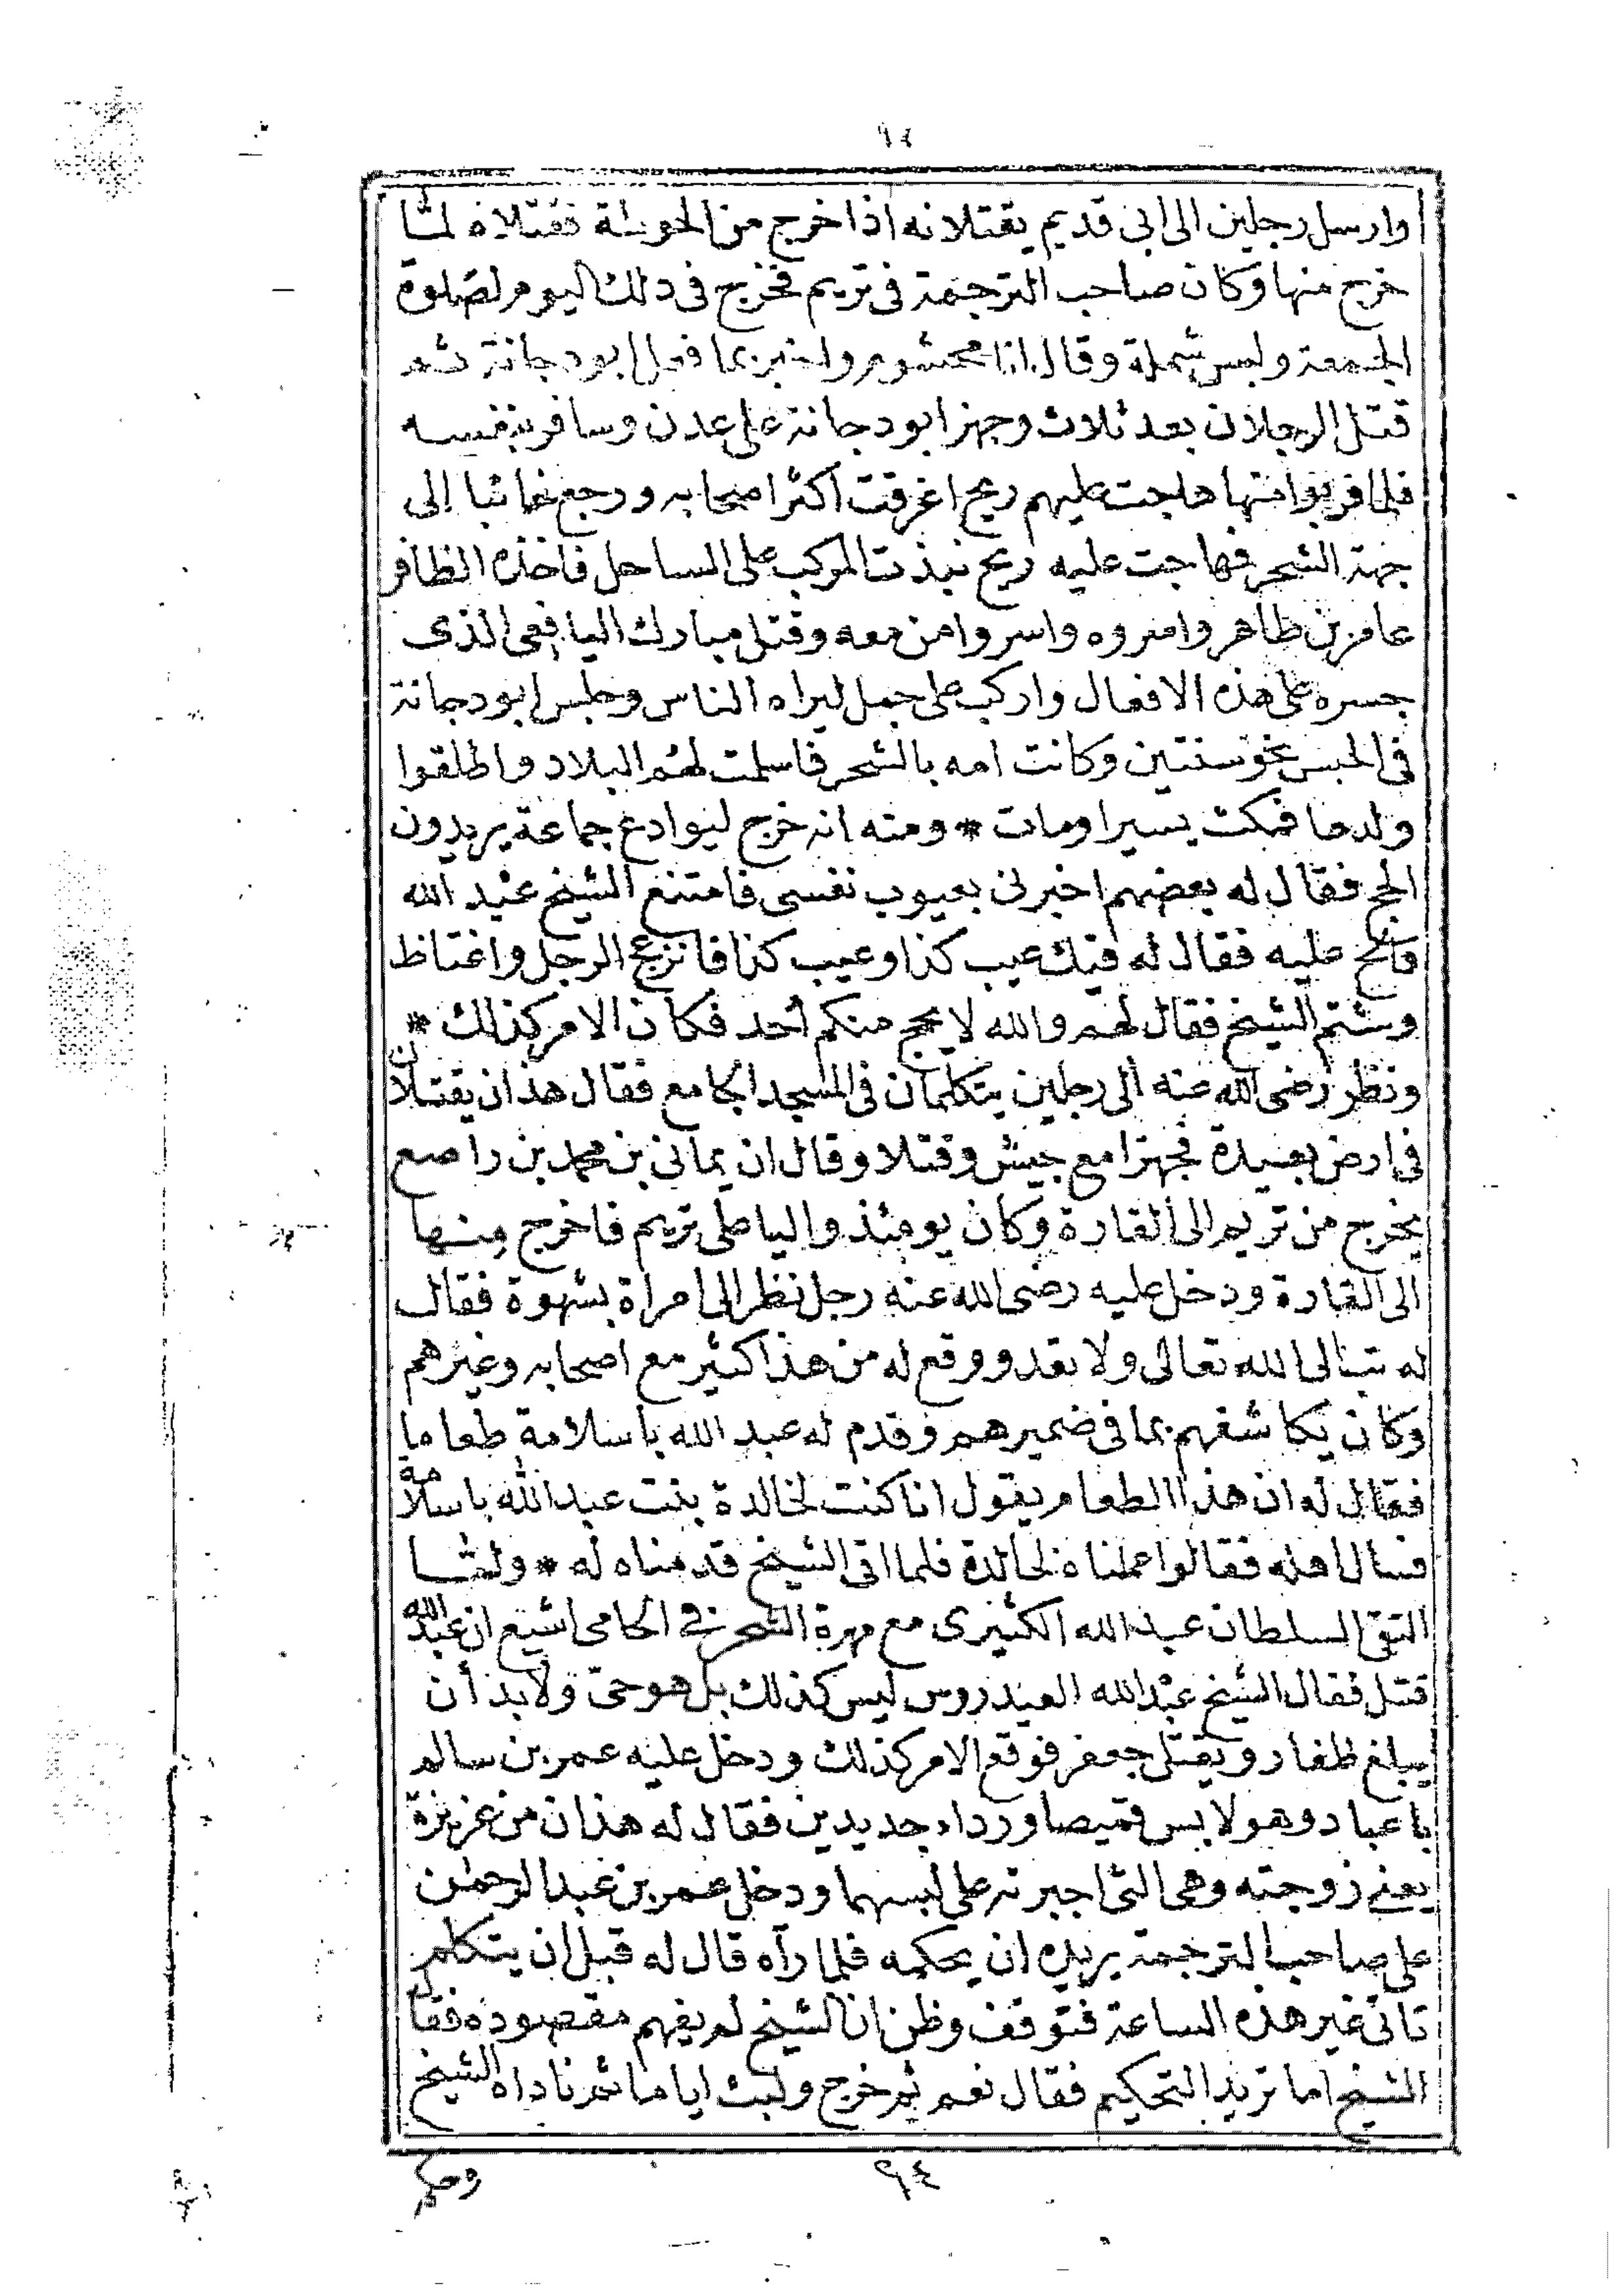 ٩٤
وارسل رجلين الى ابى قديم يقتلانه اذا خرج من الحوطة فقتلاه لمّا
خرج منها وكان صاحب الترجمة فى تريم فخرج فى ذلك اليوم لصلوة
الجمعة ولبس شملة وقال انا محتشوم واخبر بما فعل ابو دجانة ثم
قتل الرجلان بعد ثلاث وجهز ابو دجانة على عدن وسافر بنفسه
فلما قربوا منها هاجت عليهم ريح اغرقت اكثر اصحابه ورجع خائبا إلى
جهة الشحر فهاجت عليه ريح نبذت المركب على الساحل فاخذه الظافر
عامر بن طاهر واسروه واسروا من معه وقتل مبارك اليافعى الذى
جسره على هذه الافعال واركب على جمل ليراه الناس وحبس ابو دجانة
فى الحبس نحو سنتين وكانت امه بالشحر فاسلمت لهم البلاد واطلقوا
ولدها فمكث يسيرا ومات * ومنه انه خرج ليوادع جماعة يريدون
الحج فقال له بعضهم اخبرنى بعيوب نفسى فامتنع الشيخ عبد الله
فالح عليه فقال له فيك عيب كذا وعيب كذا فانزعج الرجل واغتاظ
وشتم الشيخ فقال لهم والله لا يحج منكم أحد فكان الامر كذلك *
ونظر رضى الله عنه الى رجلين يتكلمان فى المسجد الجامع فقال هذان يقتلان
فى ارض بعيدة فجهزا مع جيش وقتلا وقال ان يمانى بن محمد بن راصع
يخرج من تريم الى القارة وكان يومئذ واليا على تريم فاخرج منها
الى القارة ودخل عليه رضى الله عنه رجل نظر الى امراة بشهوة فقال
له تب الى الله تعالى ولا تعد ووقع له من هذا كثير مع اصحابه وغيرهم
وكان يكاشفهم بما فى ضميرهم وقدم له عبد الله باسلامة طعاما
فقال له ان هذا الطعام يقول انا كنت لخالدة بنت عبد الله باسلامة
فسال اهله فقالوا عملناه لخالدة فلما اتى الشيخ قدمناه له * ولمّا
التقى السلطان عبد الله الكثيرى مع مهرة الشحر فى الحامى اشيع ان عبد الله
قتل فقال الشيخ عبد الله العيدروس ليس كذلك بل هو حىّ ولا بد أن
يبلغ ظفار ويقتل جعفر فوقع الامر كذلك ودخل عليه عمر بن سالم
باعباد وهو لابس قميصا ورداء جديدين فقال له هذان من عزيزة
يعنى زوجته وهى التى اجبرته على لبسهما ودخل عمر بن عبد الرحمن
على صاحب الترجمة يريد ان يحكمه فلما رآه قال له قبل ان يتكلم
تاتى غير هذه الساعة فتوقف وظن ان الشيخ لم يفهم مقصوده فقال
الشيخ اما تريد التحكيم فقال نعم ثم خرج ولبث اياما ثم ناداه الشيخ
وحكم
٩٤